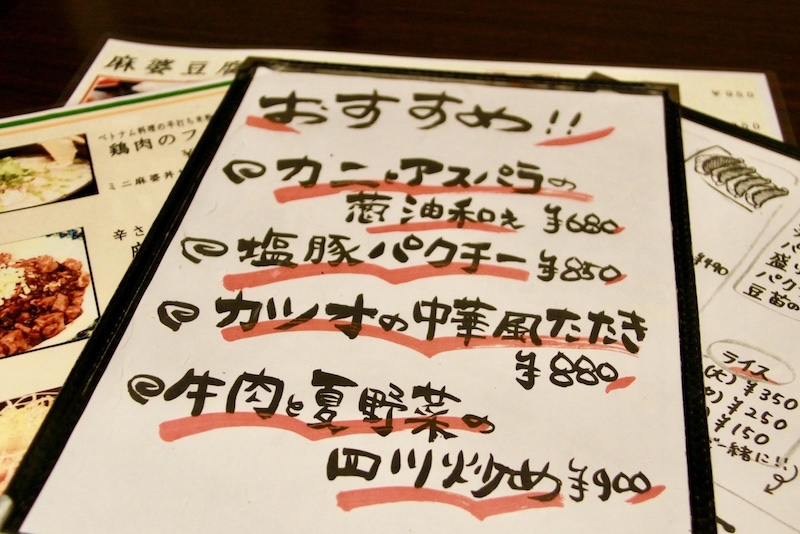 おすすめ!!
カニとアスパラの
葱油和え ¥680
塩豚パクチー ¥850
カツオの中華風たたき
¥880
牛肉と夏野菜の
四川炒め ¥900
麻婆豆腐
ベトナム料理の手打ち米麺
鶏肉のフ
ミニ麻婆丼
辛さ
¥490
パ
盛り
パク
豆苗の
ライス
(大) ¥350
¥250
¥150
一緒に!!